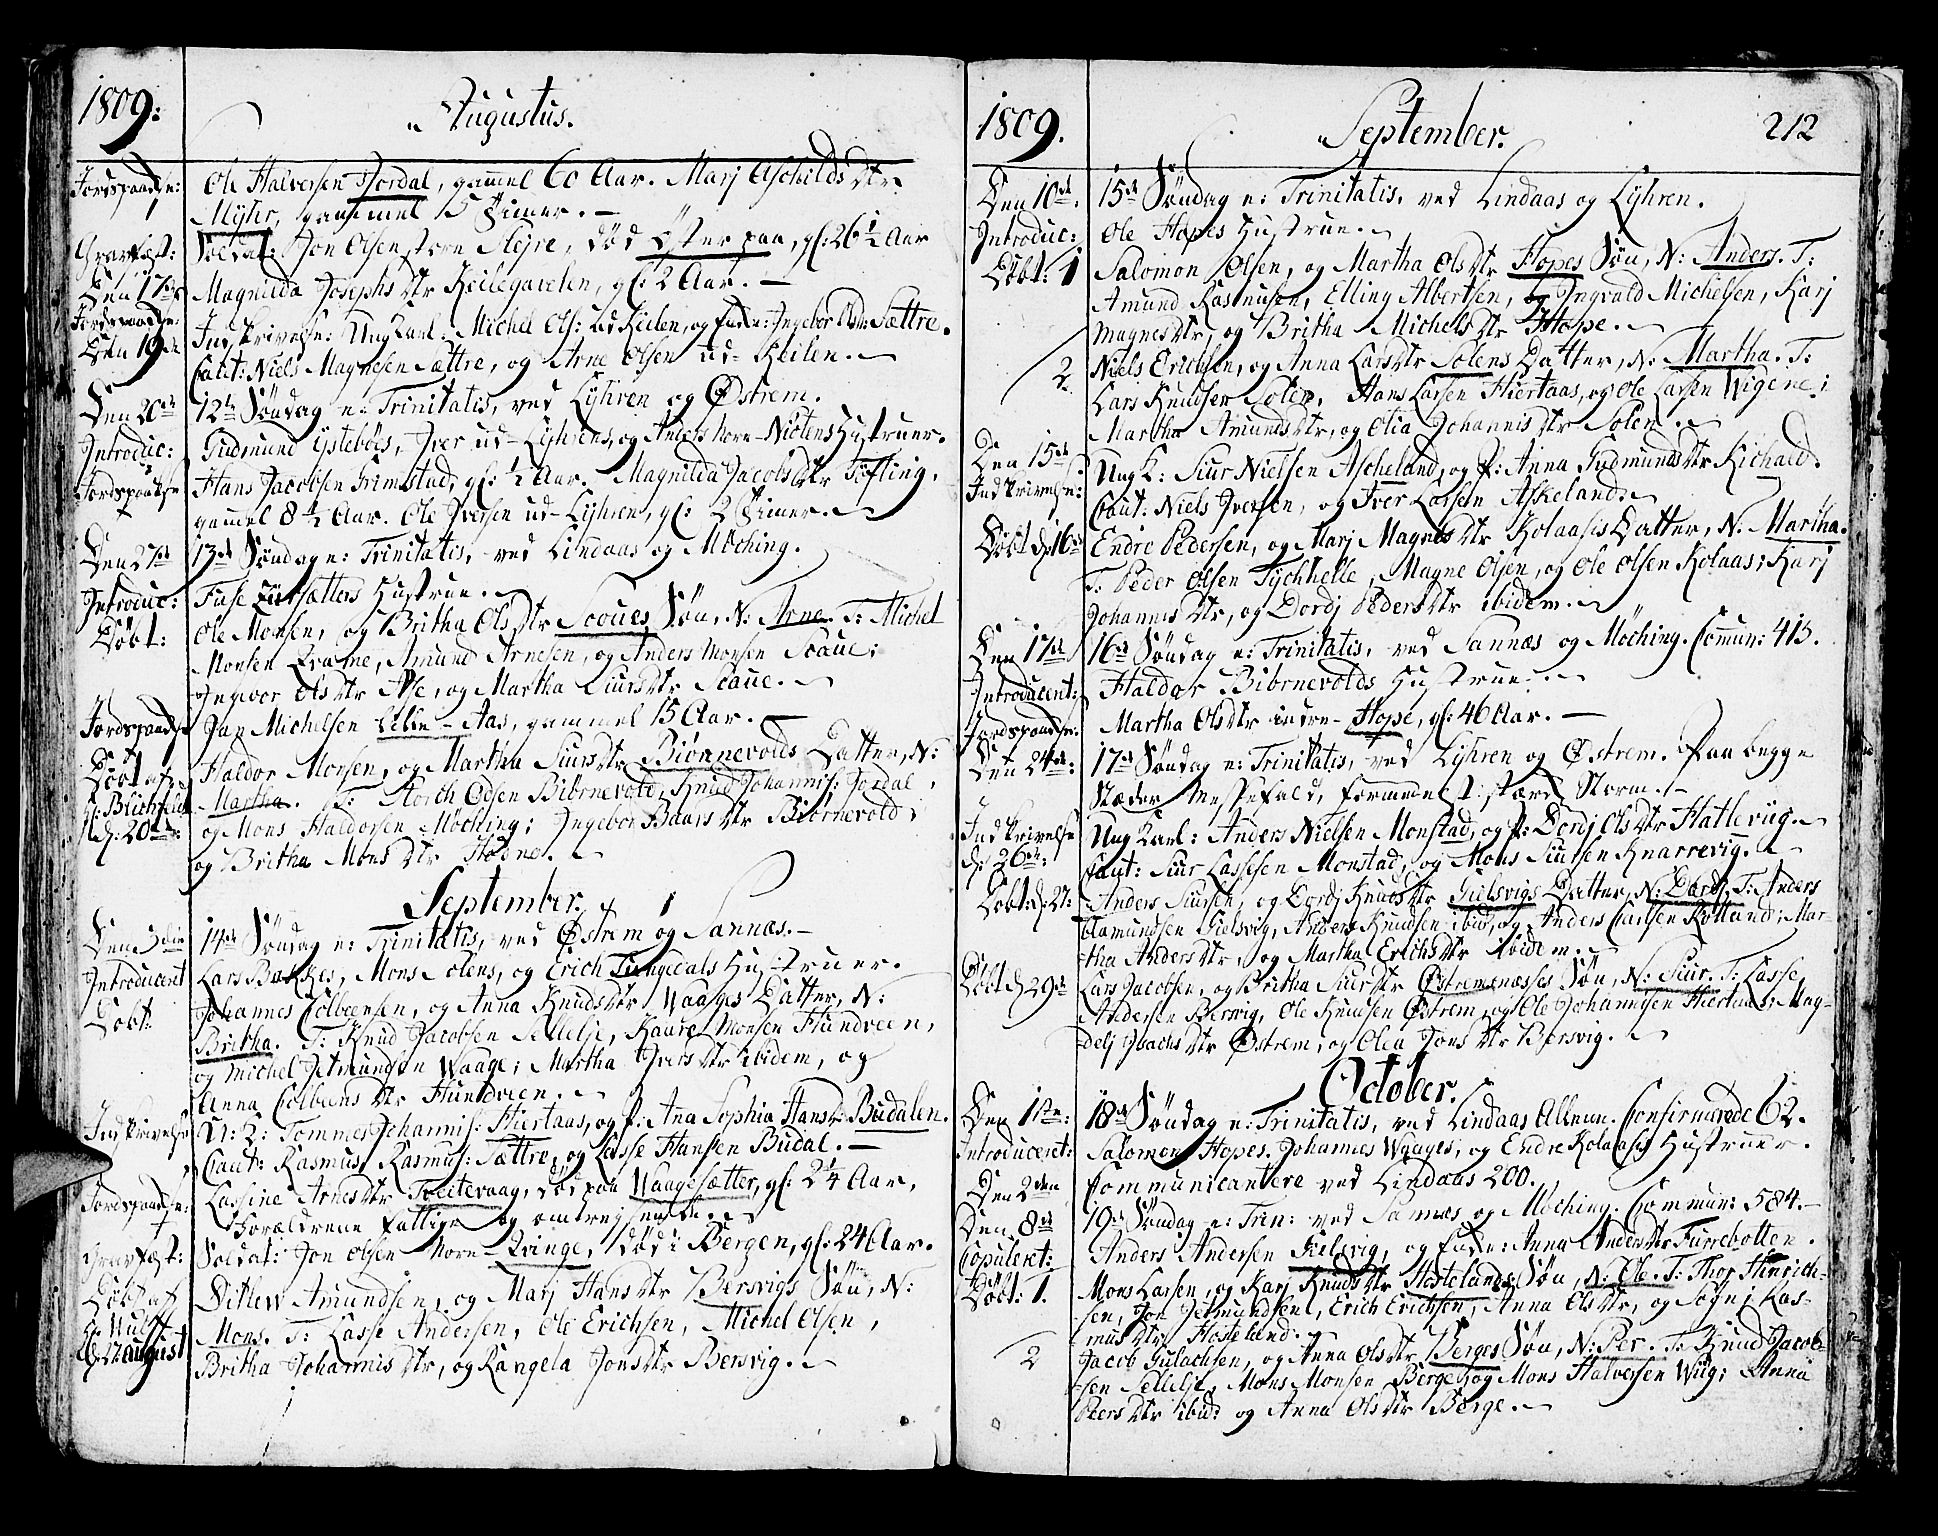 1809.
Augustus.
Jordspaadse: Ole Halversen Fjordal, gammel 60 Aar. Marj Aschilds Dtr
Myhr, gammel 5 Timer.
Gravfæst: Soldat: Jon Olsen store Hejre, død Øster paa, gl: 26 1/2 Aar
Den 17de Magnilda Josephs Dtr Keilegavelen, gl: 2 Aar.
Jordspaadse: Indskrivelse: Ung Karl: Michel Ols: ud Keilen, og Enke: Ingebor Sættre.
Den 19de Caut: Niels Magnesen Sættre, og Arne Olsen ud-Keilen.
Den 20de 12te Søndag e: Trinitatis, ved Lyhren og Østrem.
Introduc: Gudmund Ystebøes, Iver ud-Lyhrens, og Anders Norn-Njotens Hustruer.
Jordspaadse Hans Jacobsen Grimstad, gl: 1/2 Aar. Magnilda Jacobs Dtr Tøfting,
gammel 8 1/2 Aar. Ole Iversen ud-Lyhren, gl: 2 Timer.
Den 27de 13de Søndag e: Trinitatis, ved Lindaas og Møching.
Introduc: Fuse sætters Hustrue.
Døbt: Ole Monsen, og Britha Ols Dtr Scoues Søn, N: Arne. T: Michel
Monsen Amund Arnesen, og Anders Monsen Scaue;
Ingebor Ols Dtr Aase, og Martha Siurs Dtr Scaue.
Jordspaadse Jan Michelsen Lille-Aas, gammel 15 Aar.
Døbt af Haldor Monsen, og Martha Siurs Dtr Biørnevolds Datter, N:
Martha. T: Storch Odsen Biørnevold, Knud Johannis: Jordal,
d: 20de: og Mons Haldorsen Møching; Ingebor Baars Dtr Biørnevold;
og Britha Mons Dtr Hodne.
September.
Den 3die 14de Søndag e: Trinitatis, ved Østrem og Sannæs.
Introducert Lars Bakkes, Mons Solens, og Erich Tungedals Hustruer.
Døbt: Johannes Colbensen, og Anna Knuds Dtr Waages Datter, N:
Britha. T: Knud Jacobsen Sellelje, Kaare Monsen Hundveen,
og Michel Jetmundsen Waage; Martha Ivers Dtr ibidem, og
Anna Colbens Dtr Hundveen.
Indskrivelse U: K: Tommes Johannis: Hiertaas, og P: Ana Sophia Hans Dr Budalen.
Caut: Rasmus Rasmus: Sættre, og Lasse Hansen Budal.
Jordspaadse: Lassine Arnes Dtr Tveitevaag, død paa Waagesætter, gl: 2 1/4 Aar,
Forældrene fattige og omrejsende.
Gravfæst: Soldat: Jon Olsen Norn-Qvinge, død i Bergen, gl: 24 Aar.
Døbt af Ditlew Amundsen, og Marj Hans Dtr Bersvigs Søn, N:
Hr Wulff Mons. T: Lasse Andersen, Ole Erichsen, Michel Olsen,
d: 27 August Britha Johannis Dtr, og Rangela Jons Dtr Bersvig.
1809.
September.
212
Den 10de. 15de Søndag e: Trinitatis, ved Lindaas og Lyhren.
Introduc: Ole Hopes Hustrue.
Døbt: 1 Salomon Olsen, og Martha Ols Dtr Hopes Søn, N: Anders. T:
Amund Rasmusen, Elling Albertsen, og Ingvald Michelsen, Karj
Magnes Dtr, og Britha Michels Dtr Hope.
2 Niels Erichsen, og Anna Lars Dtr Solens Datter, N: Martha. T:
Lars Knudsen Solen, Hans Larsen Hiertaas, og Ole Larsen Wigene;
Martha Amunds Dtr, og Olia Johannis Dtr Solen.
Den 15de Ung K: Siur Nielsen Ascheland, og P: Anna Gudmunds Dtr Kichald.
Indskrivelse: Caut: Niels Iversen, og Iver Larsen Askeland.
Døbt d: 16de Endre Pedersen, og Marj Magnes Dtr Kolaases Datter, N: Martha.
T: Peder Olsen Tychhelle, Magne Olsen, og Ole Olsen Kolaas; Karj
Johannis Dtr, og Dordj Peders Dtr ibidem.
Den 17de 16de Søndag e: Trinitatis, ved Sannæs og Møching. Commun: 413.
Introducert: Haldor Biørnevolds Hustrue.
Jordspaadse: Martha Ols Dtr indre-Hope, gl: 46 Aar.
Den 24de: 17de Søndag e: Trinitatis, ved Lyhren og Østrem. Paa begge
Stæder Messefald, formedelst stærk Storm.
Indskrivelse Ung Karl: Anders Nielsen Monstad, og P: Dordj Ols Dtr Hatlevig.
d: 26de: Caut: Siur Lassesen Monstad, og Mons Siursen Knarrevig.
Døbt: d: 27: Anders Siursen, og Dordj Knuds Dtr Gielsvigs Datter, N: Dordj. T: Anders
Elamundsen Gielsvig, Anders Knudsen ibid, og Anders Carlsen Rotland; Mar-
tha Anders Dtr, og Martha Erichs Dtr ibidem.
Døbt d: 29de Lars Jacobsen, og Britha Siurs Dtr Østremnæsses Søn, N: Siur. T: Lasse
Andersen Bersvig, Ole Knudsen Østrem, og Ole Johannisen Hiertaas; Mag-
delj Isachs Dtr Østrem, og Olea Jons Dtr Bersvig.
October.
Den 1ste: 18de Søndag e: Trinitatis, ved Lindaas Allene. Confirmerede 62.
Introduceret: Salomon Hopes, Johannes Waages, og Endre Kolaases Hustruer.
Den 2den Communicantere ved Lindaas 200.
Den 8de 19de Søndag e: Trin: ved Sannæs og Møching. Commun: 584.
Copulert: Anders Andersen Gielsvig, og Enke: Anna Anders Dtr Furrebotten.
Døbt: 1. Mons Larsen, og Karj Knuds Dtr Hostelands Søn, N: Ole. T: Thor Hinrich-
sen, Jon Jetmundsen, Erich Erichsen, Anna Ols Dtr, og Sognj Ras-
mus Dtr Hosteland.
2 Jacob Gulachsen, og Anna Ols Dtr Berges Søn, N: Per. T: Knud Jacob-
sen Sellelje, Mons Monsen Berge, og Mons Halversen Wiig; Anna
Peers Dtr ibid: og Anna Ols Dtr Berge.